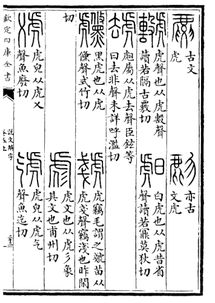 古文
虎
亦古
文虎
虎也从虎㱿聲
讀若隔古覈切
白虎也从虎昔省
聲讀若鼏莫狄切
虎屬从虎去聲臣鉉等
曰去非聲未詳呼濫切
黑虎也从虎
儵聲式竹切
虎竊毛謂之虦苗从
虎戔聲竊淺也昨閑
切
虎文也从虎彡象
其文也甫州切
虎皃从虎乂
聲魚廢切
虎皃从虎气
聲魚迄切
欽定四庫全書
說文解字